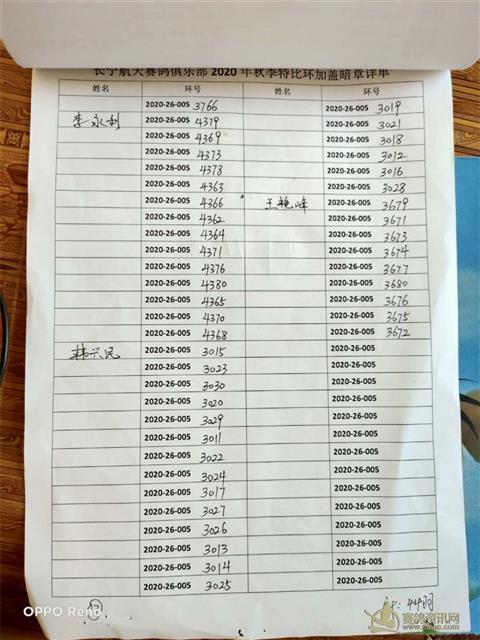 长宁航天赛鸽俱乐部 2020 年秋季特比环加盖暗章详单
姓名 环号 姓名 环号
2020-26-005 3766 2020-26-005 3019
李永利 2020-26-005 4379 2020-26-005 3021
2020-26-005 4369 2020-26-005 3018
2020-26-005 4373 2020-26-005 3012
2020-26-005 4378 2020-26-005 3016
2020-26-005 4363 2020-26-005 3028
2020-26-005 4366 王艳峰 2020-26-005 3679
2020-26-005 4362 2020-26-005 3671
2020-26-005 4364 2020-26-005 3673
2020-26-005 4371 2020-26-005 3674
2020-26-005 4376 2020-26-005 3677
2020-26-005 4380 2020-26-005 3680
2020-26-005 4365 2020-26-005 3676
2020-26-005 4370 2020-26-005 3675
2020-26-005 4368 2020-26-005 3672
韩兴民 2020-26-005 3015 2020-26-005
2020-26-005 3023 2020-26-005
2020-26-005 3030 2020-26-005
2020-26-005 3020 2020-26-005
2020-26-005 3029 2020-26-005
2020-26-005 3011 2020-26-005
2020-26-005 3022 2020-26-005
2020-26-005 3024 2020-26-005
2020-26-005 3017 2020-26-005
2020-26-005 3027 2020-26-005
2020-26-005 3026 2020-26-005
2020-26-005 3013 2020-26-005
2020-26-005 3014 2020-26-005
2020-26-005 3025 2020-26-005
44羽
OPPO Reno
赛鸽资讯网